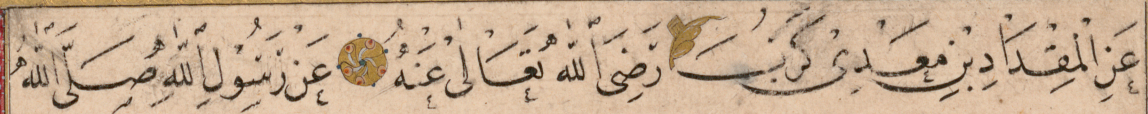 عَنِ الْمِقْدَادِ بْنِ مَعْدِيْ كَرَبَ رَضِيَ اللّٰهُ تَعَالٰى عَنْهُ عَنْ رَسُوْلِ اللّٰهِ صَلَّى اللّٰهُ